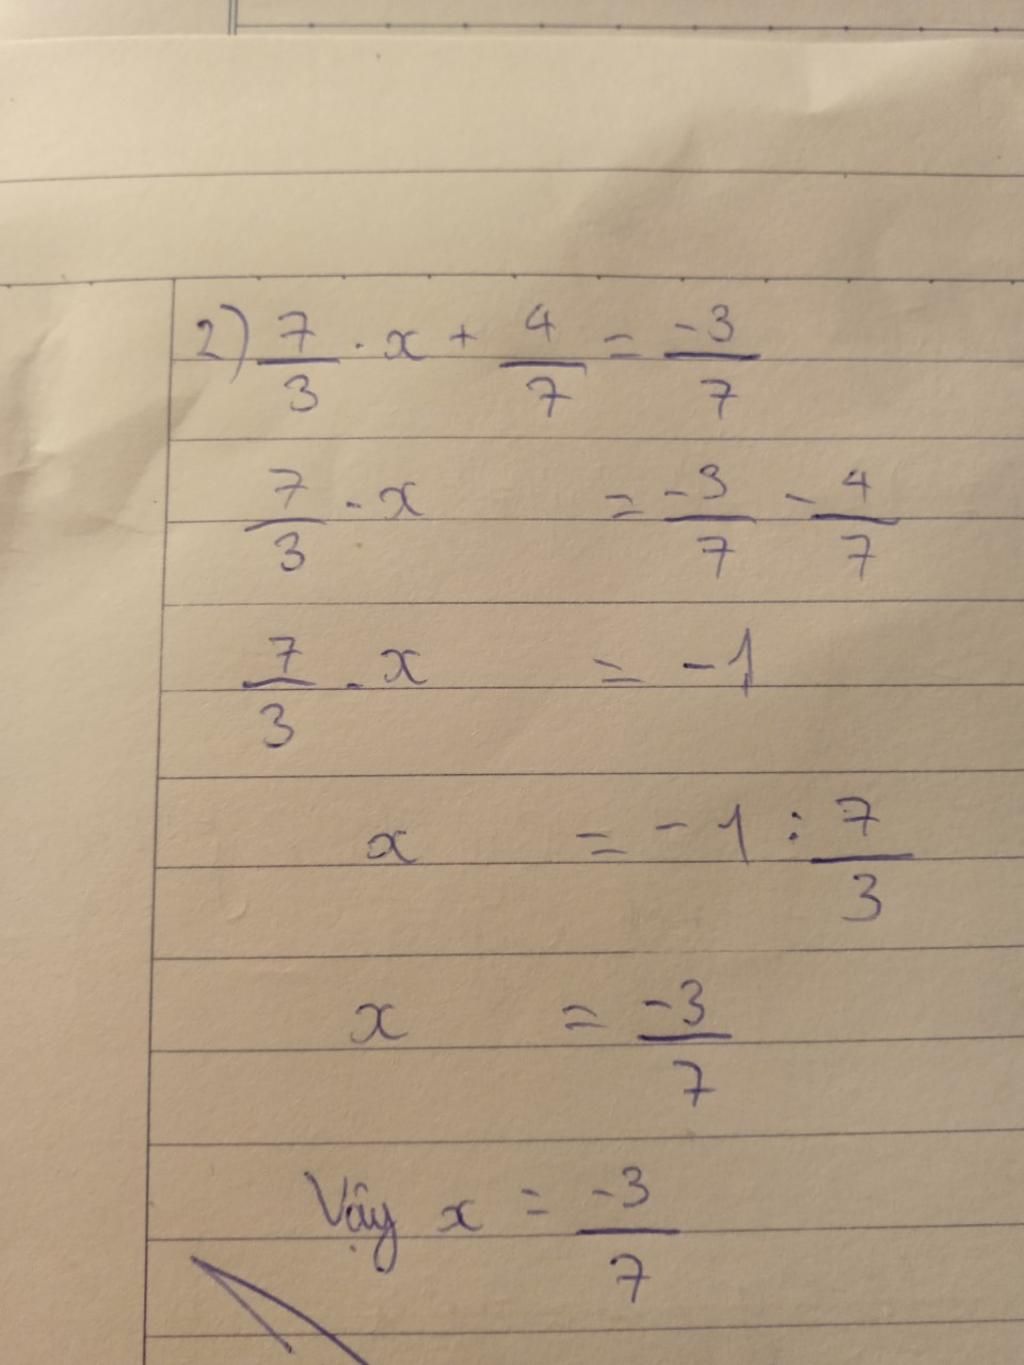 2) 7/3 . x + 4/7 = -3/7
7/3 . x = -3/7 - 4/7
7/3 . x = -1
x = -1 : 7/3
x = -3/7
Vậy x = -3/7